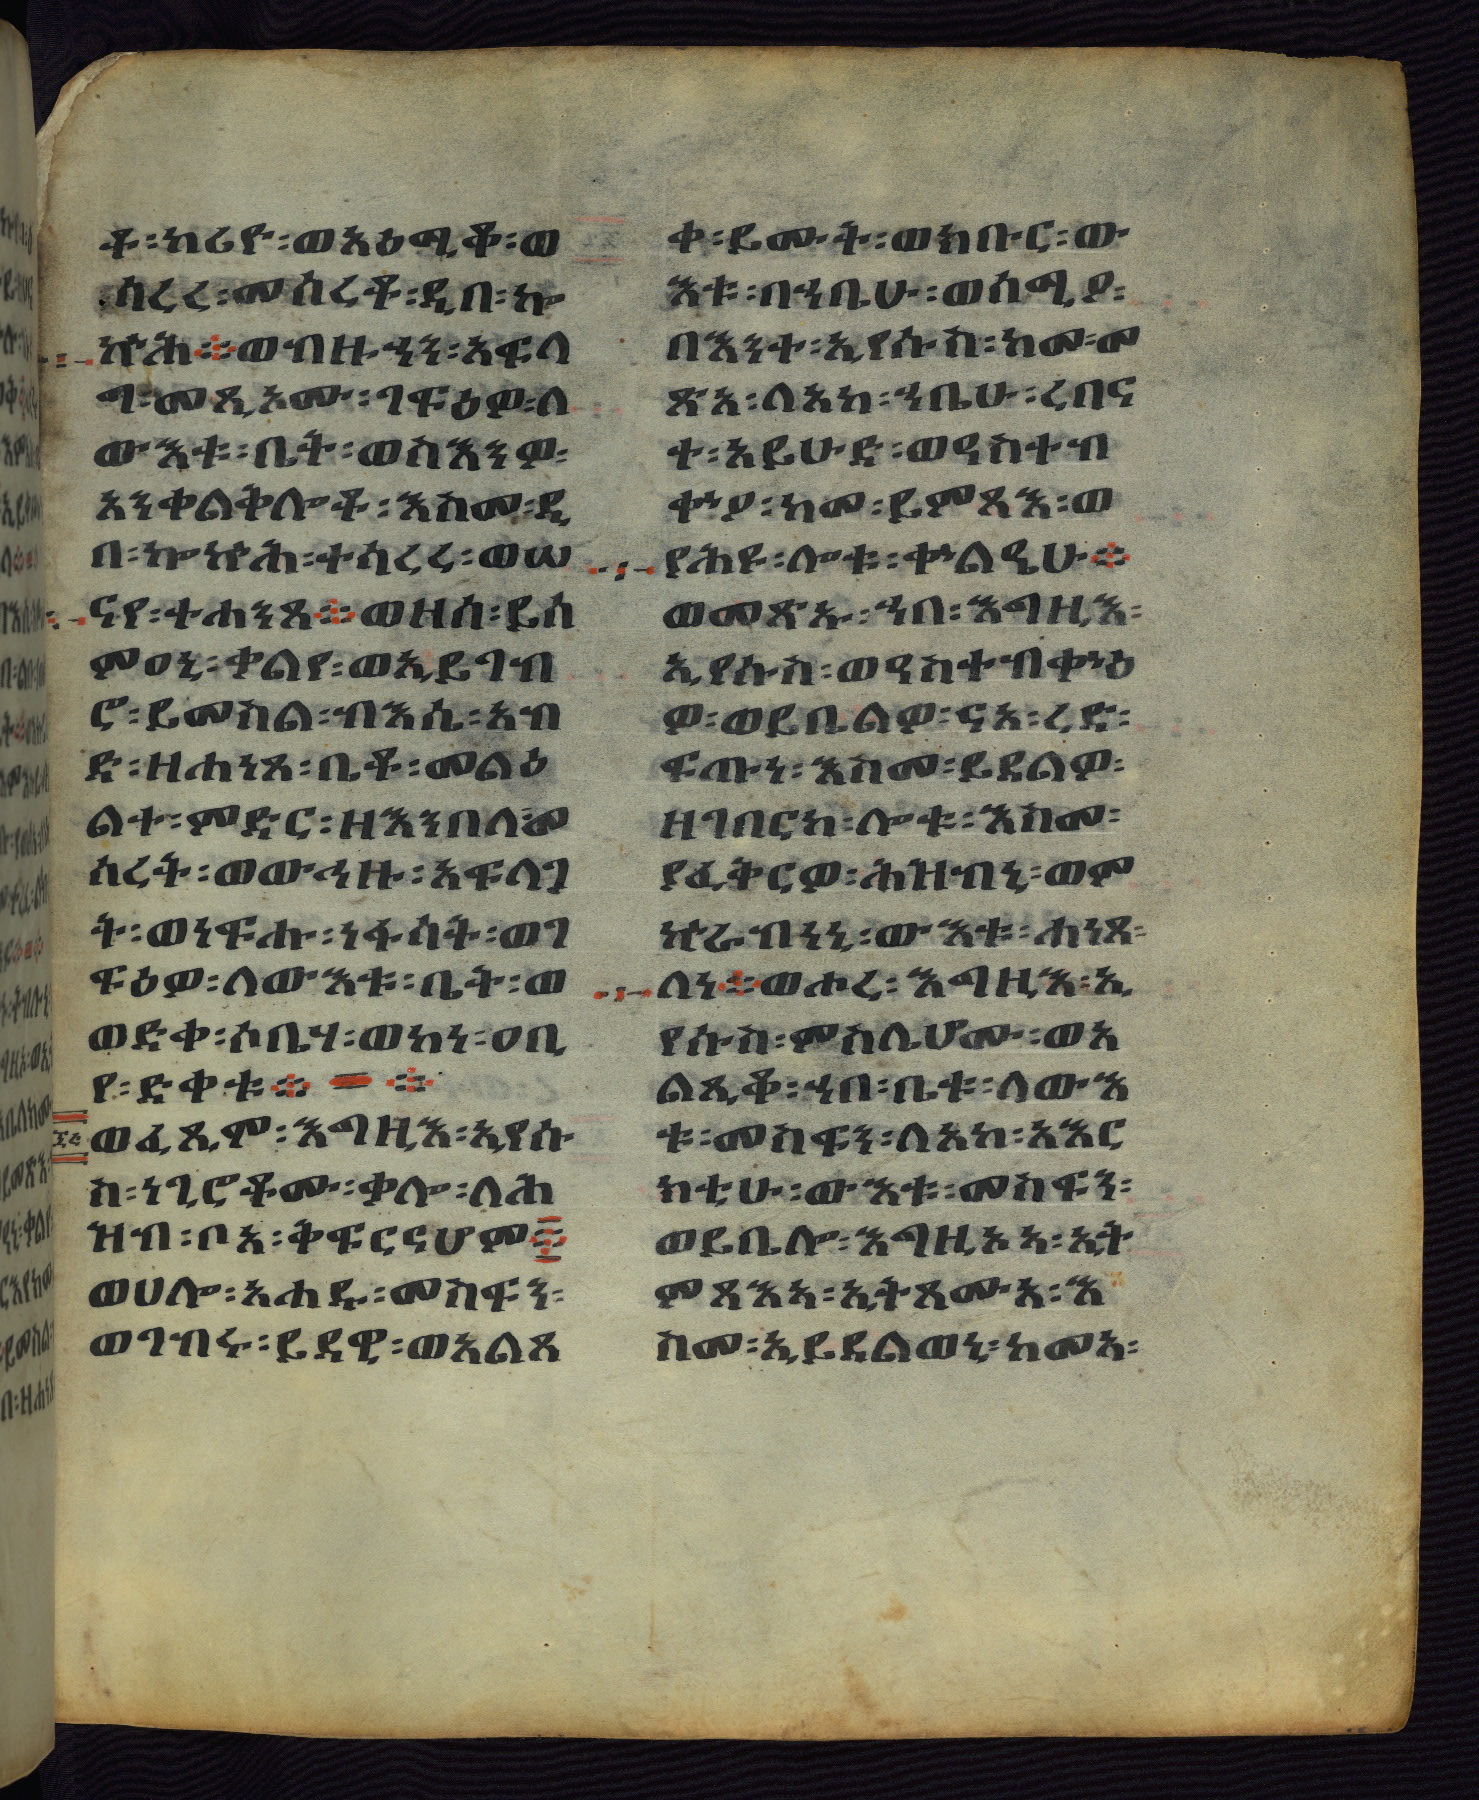 ቶ፡ከረየ፡ወአዕማቆ፡ወ
ሳረረ፡መሰረቶ፡ዲበ፡ኰ
ኵሕ፨ወብዙኅነ፡አፍላ
ግ፡መጺኦሙ፡ገፍዕዎ፡ለ
ውእቱ፡ቤት፡ወስእንዎ፡
አንቀልቅሎቶ፡እስመ፡ዲ
በ፡ኰኵሕ፡ተሳረረ፡ወሠ
ናየ፡ተሐንጸ፨ወዘሰ፡ይሰ
ምዐኒ፡ቀልየ፡ወኢይገብ
ሮ፡ይመስል፡ብእሴ፡አብ
ድ፡ዘሐነጸ፡ቤቶ፡መልዕ
ልተ፡ምድር፡ዘእንበለ፡መ
ሰረት፡ወውኅዙ፡አፍላጋ
ት፡ወነፍሑ፡ነፋሳት፡ወገ
ፍዕዎ፡ለውእቱ፡ቤት፡ወ
ወድቀ፡ሶቤሃ፡ወኮነ፡ዐቢ
የ፡ድቀቱ፨ ፨
፲፬ ወፈጺሞ፡እግዚእ፡ኢየሱ
ስ፡ነጊሮቶሙ፡ቃሎ፡ለሕ
ዝብ፡ቦአ፡ቅፍርናሆም፨
ወሀሎ፡አሐዱ፡መስፍን፡
ወገብሩ፡ይደዊ፡ወአልጸ
ቀ፡ይሙት፡ወክቡር፡ው
እቱ፡በኀቤሁ፡ወሰሚዖ፡
በእንተ፡ኢየሱስ፡ከመ፡መ
ጽአ፡ለአከ፡ኀቤሁ፡ረበና
ተ፡አይሁድ፡ወዳስተብ
ቍዖ፡ከመ፡ይምጻእ፡ወ
የሕዩ፡ሎቱ፡ቍልዔሁ፨
ወመጽኡ፡ኀበ፡እግዚእ፡
ኢየሱስ፡ወዳስተብቍዕ
ዎ፡ወይቤልዎ፡ናአ፡ረድ፡
ፍጡነ፡እስመ፡ይደልዎ፡
ዘገበርከ፡ሎቱ፡እስመ፡
የፈቅርዎ፡ሕዝብኒ፡ወም
ኵራብነኒ፡ውእቱ፡ሐነጸ፡
ለነ፨ወሖረ፡እግዚእ፡ኢ
የሱስ፡ምስሌሆሙ፡ወአ
ልጺቆ፡ኀበ፡ቤቱ፡ለውእ
ቱ፡መስፍን፡ለአከ፡አእር
ክቲሁ፡ውእቱ፡መስፍን፡
ወይቤሎ፡እግዚእአ፡ኢት
ምጻእአ፡ኢትጻሙአ፡እ
ስመ፡ኢይደልወኒ፡ከመአ፡